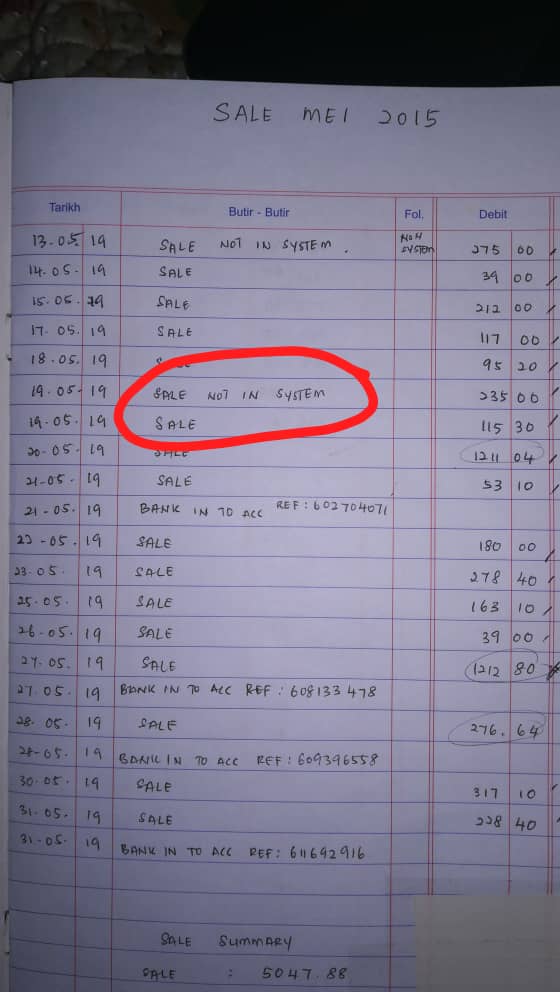 SALE MEI 2015
Tarikh Butir - Butir Fol. Debit
13.05 19 SALE NOT IN SYSTEM . NOH SYSTEM 275 00
14.05. 19 SALE 39 00
15.05. 19 SALE 212 00
17.05. 19 SALE 117 00
18.05. 19 95 20
19.05. 19 SALE NOT IN SYSTEM 235 00
19.05. 19 SALE 115 30
20.05. 19 SALE 1211 04
21.05. 19 SALE 53 10
21.05. 19 BANK IN TO ACC REF : 602704071
23.05. 19 SALE 180 00
23.05. 19 SALE 278 40
25.05. 19 SALE 163 10
26.05. 19 SALE 39 00
27.05. 19 SALE 1212 80
27.05. 19 BANK IN TO ACC REF : 608133 478
28.05. 19 SALE 276. 64
28.05. 19 BANK IN TO ACC REF : 609396558
30.05. 19 SALE 317 10
31.05. 19 SALE 228 40
31.05. 19 BANK IN TO ACC REF : 611692916
SALE SUMMARY
SALE : 5047.88